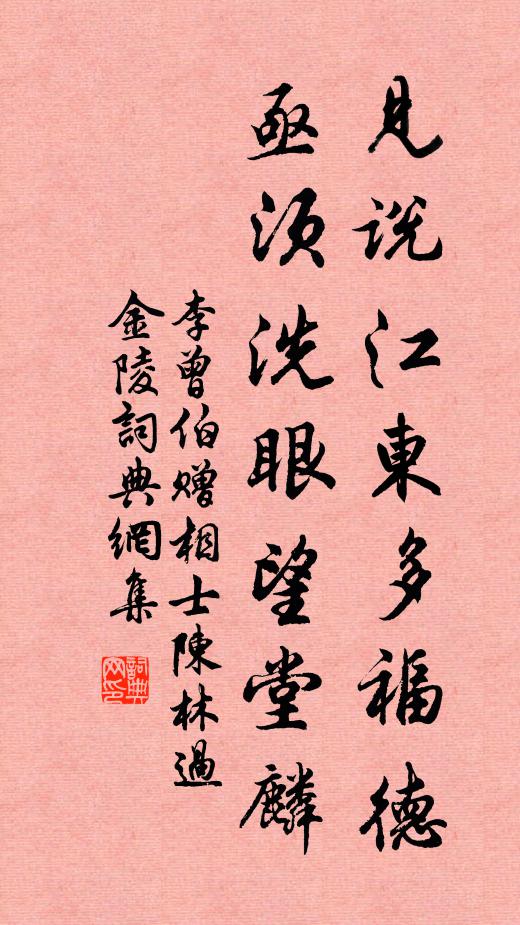 見説江東多福德
亟須洗眼望堂麟
李曾伯贈相士陳林過
金陵詞典網集
詞典網印